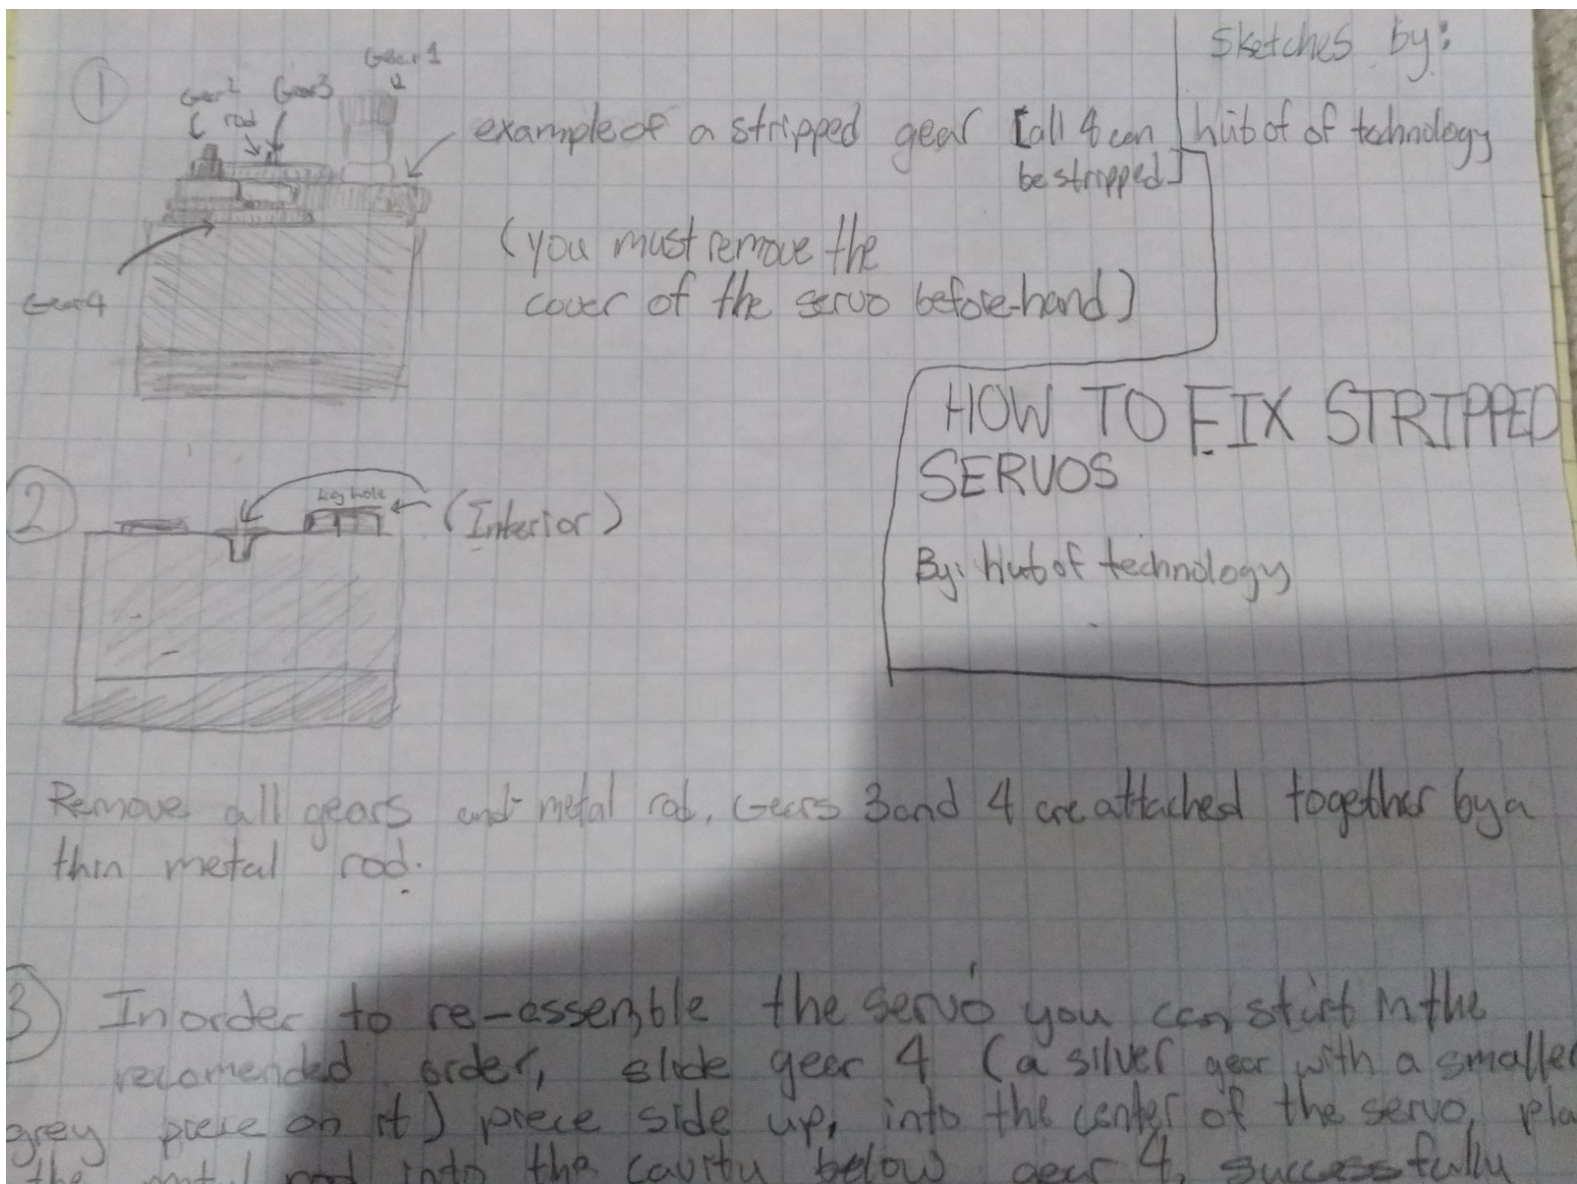 Sketches by:
hub of of technology
1
Gear 1
Gear 2
Gear3
rod
example of a stripped gear [all 4 can
be stripped]
(you must remove the
cover of the servo before-hand)
Gear4
HOW TO FIX STRIPPED
SERVOS
By: hub of technology
2
key hole
(Interior)
Remove all gears and metal rod. Gears 3 and 4 are attached together by a
thin metal rod.
3
In order to re-assemble the servo you can start in the
recomended order, slide gear 4 (a silver gear with a smaller
grey piece on it) piece side up, into the center of the servo,
the metal rod into the cavity below gear 4, successfully